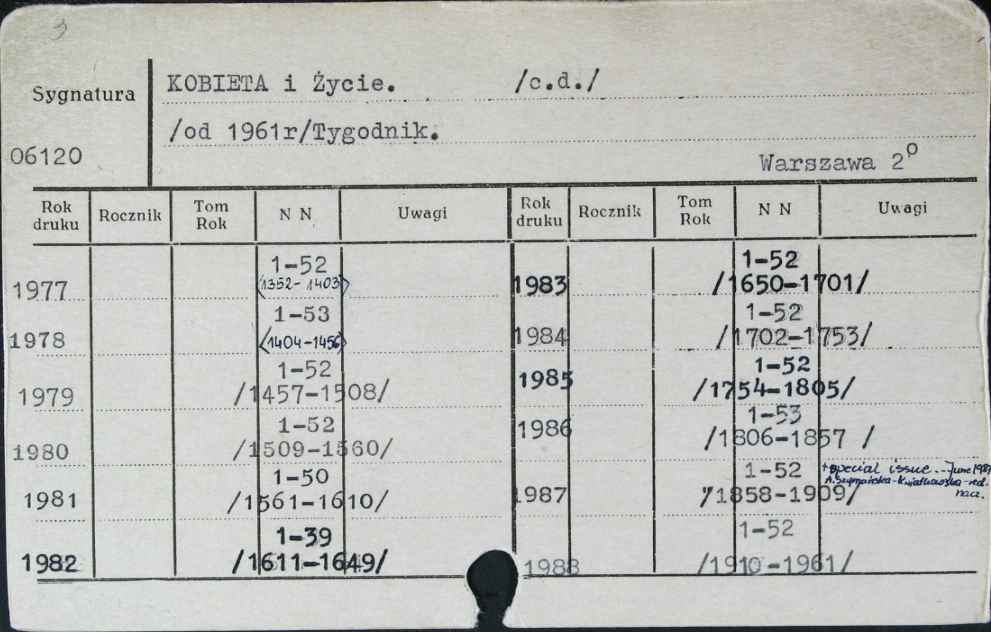 3
Sygnatura
KOBIETA i Życie. /c.d./
/od 1961r/Tygodnik.
06120
Warszawa 2º
Rok druku Rocznik Tom Rok N N Uwagi Rok druku Rocznik Tom Rok N N Uwagi
1977 1-52
<1352-1403>
1978 1-53
<1404-1456>
1979 1-52
/1457-1508/
1980 1-52
/1509-1560/
1981 1-50
/1561-1610/
1982 1-39
/1611-1649/
1983 1-52
/1650-1701/
1984 1-52
/1702-1753/
1985 1-52
/1754-1805/
1986 1-53
/1806-1857 /
1987 1-52
/1858-1909/
+special issue - June 1987
A. Szymańska-Kwiatkowska-red.
nacz.
1988 1-52
/1910-1961/